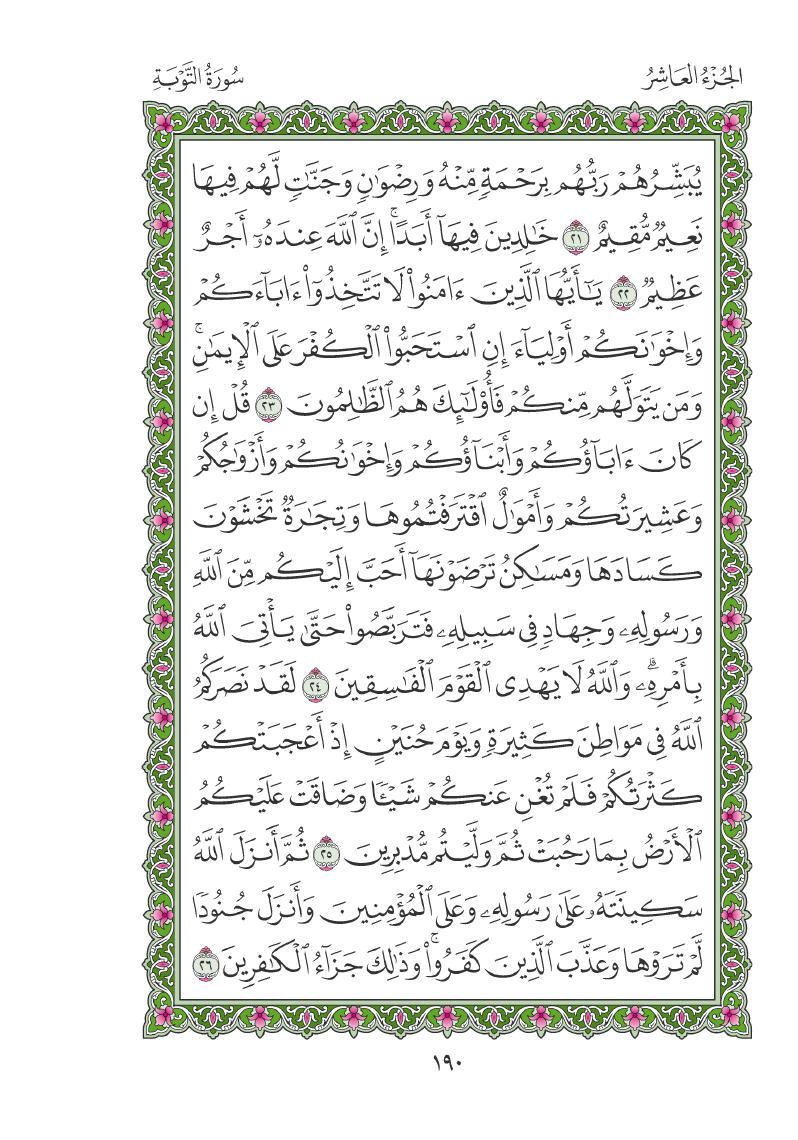 الجُزْءُ العَاشِرُ
سُورَةُ التَّوْبَةِ
يُبَشِّرُهُمْ رَبُّهُم بِرَحْمَةٍ مِّنْهُ وَرِضْوَٰنٍ وَجَنَّٰتٍ لَّهُمْ فِيهَا
نَعِيمٌ مُّقِيمٌ ٢١ خَٰلِدِينَ فِيهَآ أَبَدًا ۚ إِنَّ ٱللَّهَ عِندَهُۥٓ أَجْرٌ
عَظِيمٌ ٢٢ يَٰٓأَيُّهَا ٱلَّذِينَ ءَامَنُوا۟ لَا تَتَّخِذُوٓا۟ ءَابَآءَكُمْ
وَإِخْوَٰنَكُمْ أَوْلِيَآءَ إِنِ ٱسْتَحَبُّوا۟ ٱلْكُفْرَ عَلَى ٱلْإِيمَٰنِ ۚ
وَمَن يَتَوَلَّهُم مِّنكُمْ فَأُو۟لَٰٓئِكَ هُمُ ٱلظَّٰلِمُونَ ٢٣ قُلْ إِن
كَانَ ءَابَآؤُكُمْ وَأَبْنَآؤُكُمْ وَإِخْوَٰنُكُمْ وَأَزْوَٰجُكُمْ
وَعَشِيرَتُكُمْ وَأَمْوَٰلٌ ٱقْتَرَفْتُمُوهَا وَتِجَٰرَةٌ تَخْشَوْنَ
كَسَادَهَا وَمَسَٰكِنُ تَرْضَوْنَهَآ أَحَبَّ إِلَيْكُم مِّنَ ٱللَّهِ
وَرَسُولِهِۦ وَجِهَادٍ فِى سَبِيلِهِۦ فَتَرَبَّصُوا۟ حَتَّىٰ يَأْتِىَ ٱللَّهُ
بِأَمْرِهِۦ ۗ وَٱللَّهُ لَا يَهْدِى ٱلْقَوْمَ ٱلْفَٰسِقِينَ ٢٤ لَقَدْ نَصَرَكُمُ
ٱللَّهُ فِى مَوَاطِنَ كَثِيرَةٍ ۙ وَيَوْمَ حُنَيْنٍ ۙ إِذْ أَعْجَبَتْكُمْ
كَثْرَتُكُمْ فَلَمْ تُغْنِ عَنكُمْ شَيْـًٔا وَضَاقَتْ عَلَيْكُمُ
ٱلْأَرْضُ بِمَا رَحُبَتْ ثُمَّ وَلَّيْتُم مُّدْبِرِينَ ٢٥ ثُمَّ أَنزَلَ ٱللَّهُ
سَكِينَتَهُۥ عَلَىٰ رَسُولِهِۦ وَعَلَى ٱلْمُؤْمِنِينَ وَأَنزَلَ جُنُودًا
لَّمْ تَرَوْهَا وَعَذَّبَ ٱلَّذِينَ كَفَرُوا۟ ۚ وَذَٰلِكَ جَزَآءُ ٱلْكَٰفِرِينَ ٢٦
١٩٠